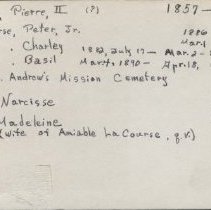 , Pierre, II (?) 1857-
rse, Peter, Jr. 1886
. Charley 1882, July 17- Mar. 2-
. Basil Mar. 4, 1890- Apr. 18,
. Andrew's Mission Cemetery
Narcisse
Madeleine
(wife of Amiable LaCourse, q.v.)